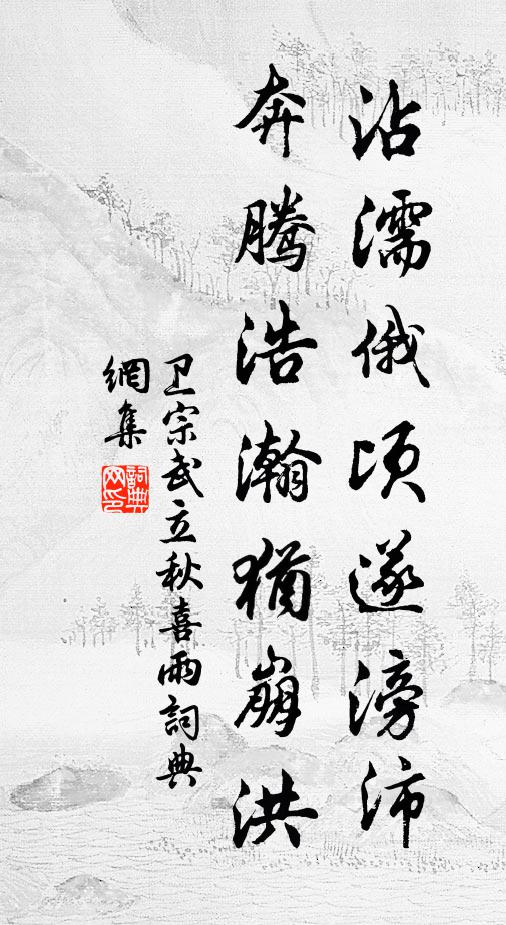 沾濡俄顷遂滂沛
奔腾浩瀚犹崩洪
卫宗武立秋喜雨詞典
網集
詞典网印